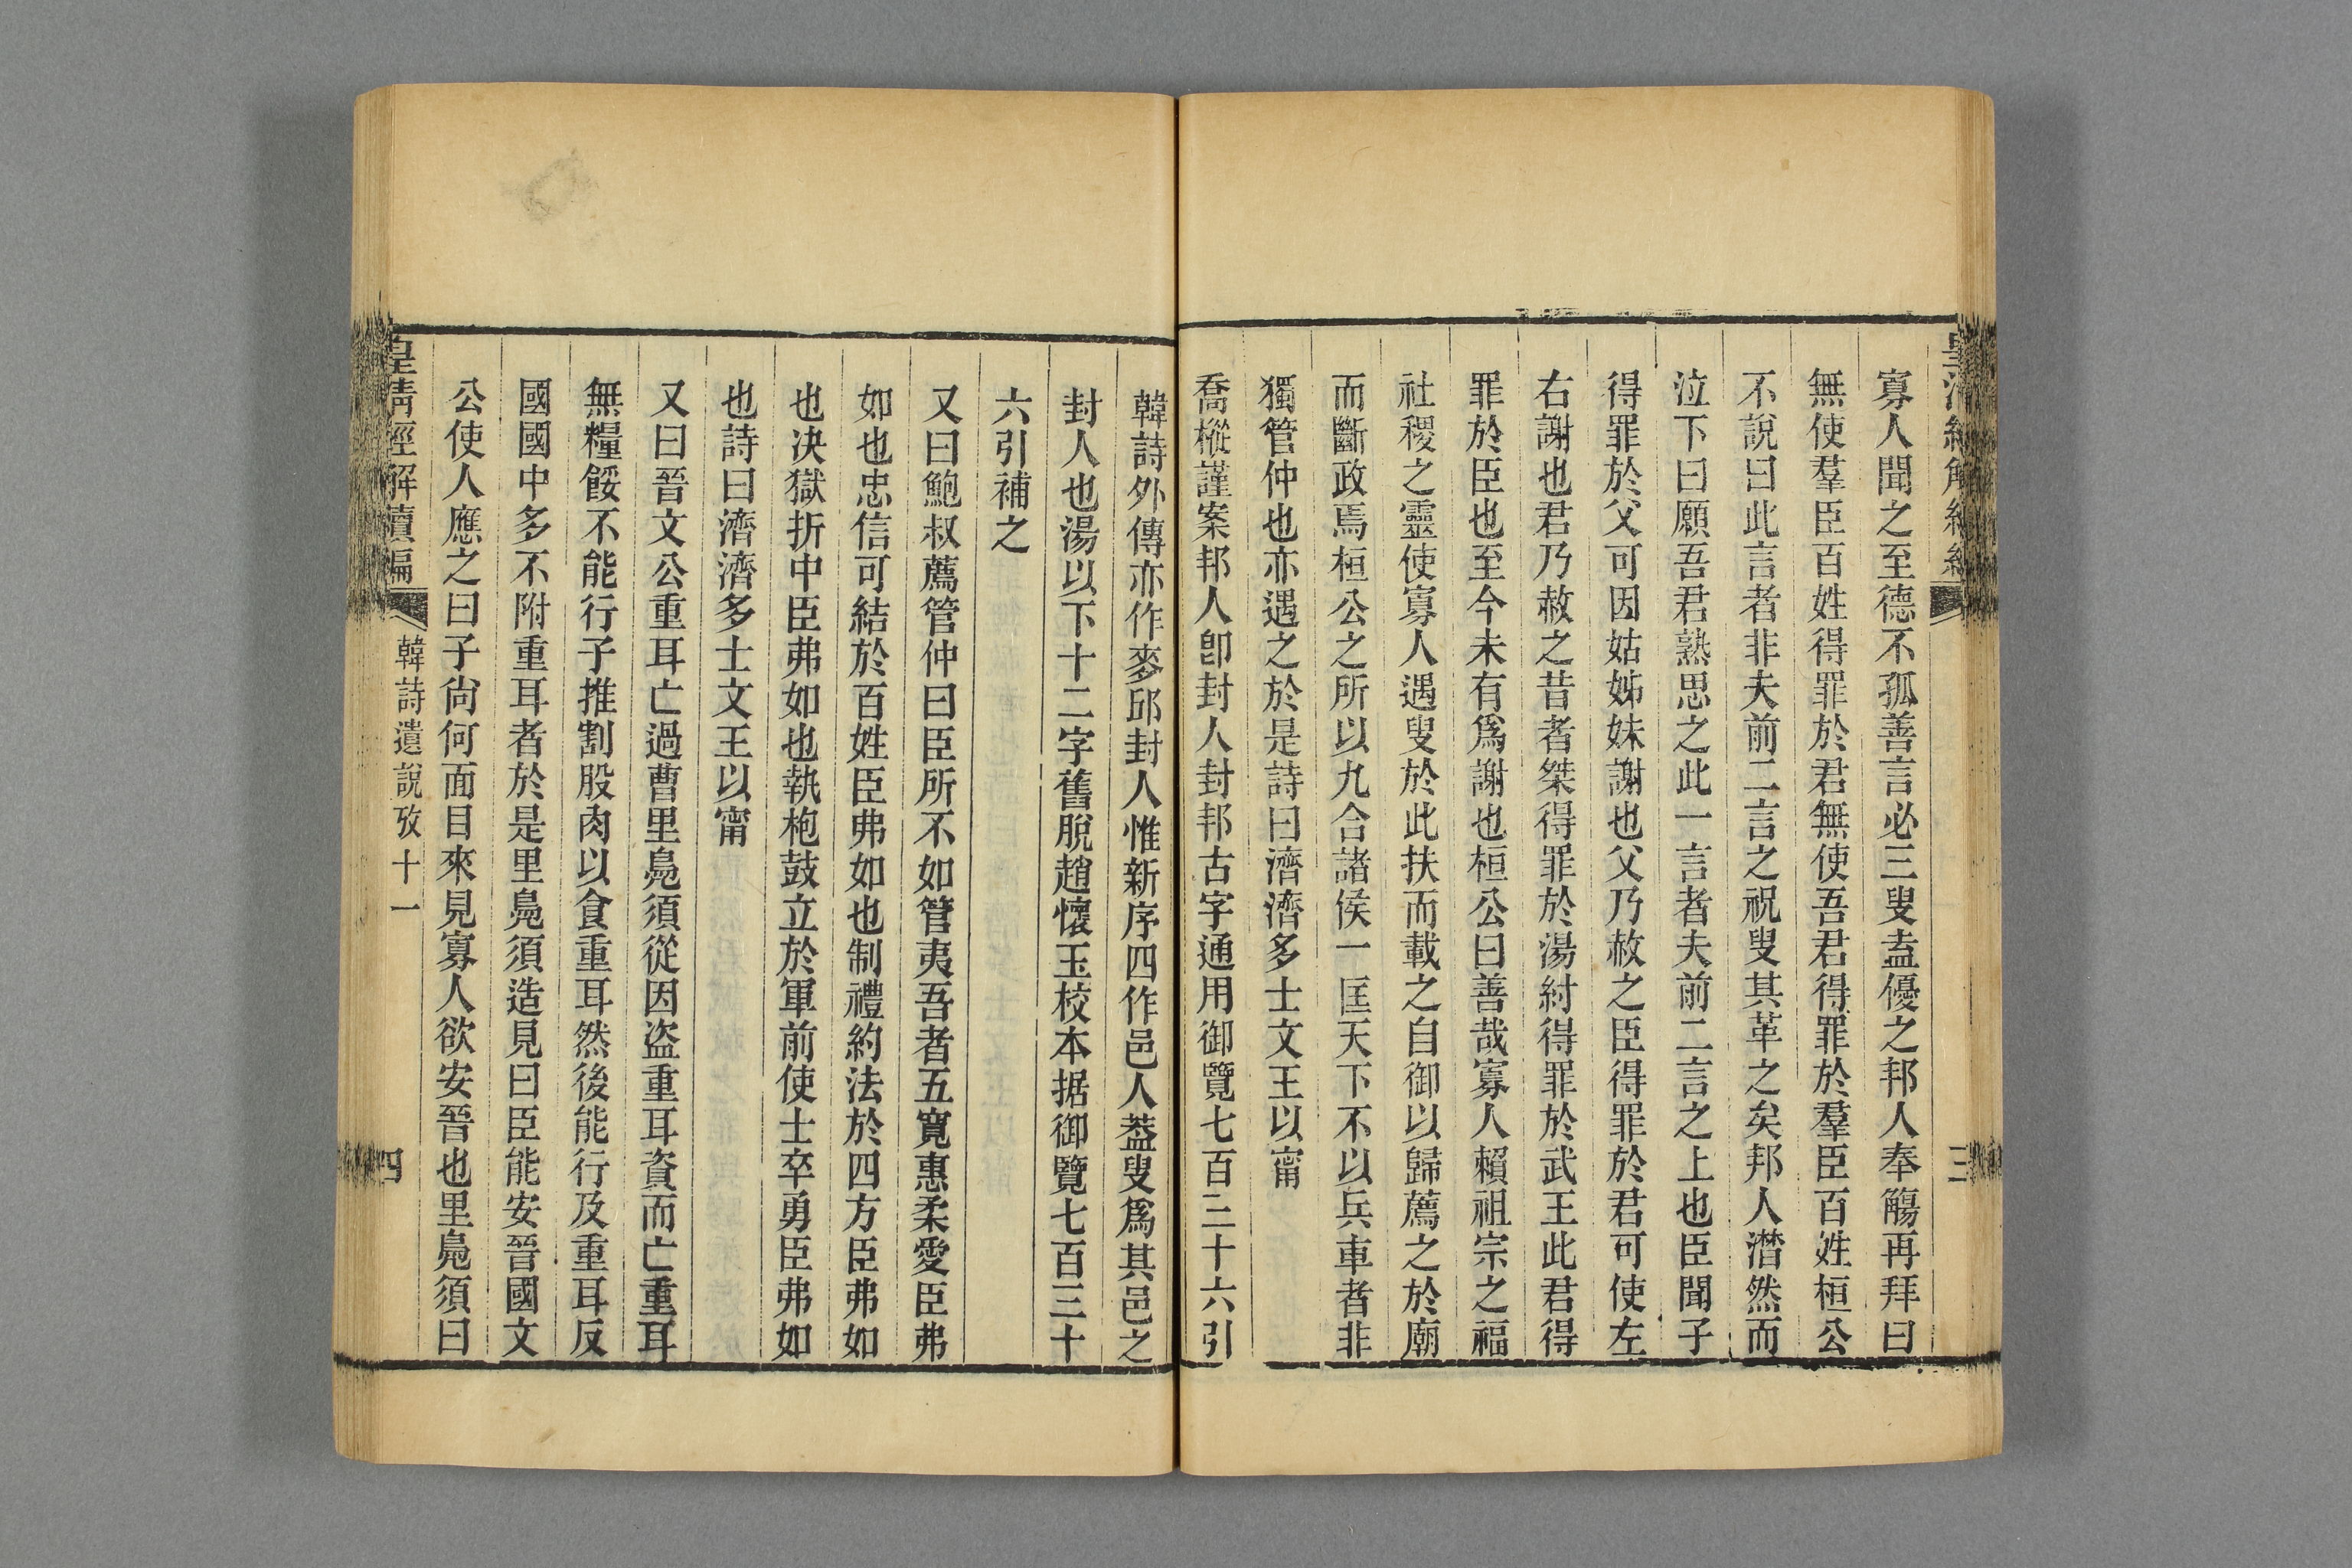 寡人聞之至德不孤善言必三叟盍優之邦人奉觴再拜曰
無使羣臣百姓得罪於君無使吾君得罪於羣臣百姓桓公
不說曰此言者非夫前二言之祝叟其革之矣邦人潸然而
泣下曰願吾君熟思之此一言者夫前二言之上也臣聞子
得罪於父可因姑姊妹謝也父乃赦之臣得罪於君可使左
右謝也君乃赦之昔者桀得罪於湯紂得罪於武王此君得
罪於臣也至今未有爲謝也桓公曰善哉寡人賴祖宗之福
社稷之靈使寡人遇叟於此扶而載之自御以歸薦之於廟
而斷政焉桓公之所以九合諸侯一匡天下不以兵車者非
獨管仲也亦遇之於是詩曰濟濟多士文王以甯
喬樅謹案邦人卽封人封邦古字通用御覽七百三十六引
三
韓詩外傳亦作麥邱封人惟新序四作邑人葢叟爲其邑之
封人也湯以下十二字舊脫趙懷玉校本据御覽七百三十
六引補之
又曰鮑叔薦管仲曰臣所不如管夷吾者五寬惠柔愛臣弗
如也忠信可結於百姓臣弗如也制禮約法於四方臣弗如
也決獄折中臣弗如也執枹鼓立於軍前使士卒勇臣弗如
也詩曰濟濟多士文王以甯
又曰晉文公重耳亡過曹里鳧須從因盜重耳資而亡重耳
無糧餒不能行子推割股肉以食重耳然後能行及重耳反
國國中多不附重耳者於是里鳧須造見曰臣能安晉國文
公使人應之曰子尙何面目來見寡人欲安晉也里鳧須曰
皇淸經解續編
韓詩遺說攷十一
四